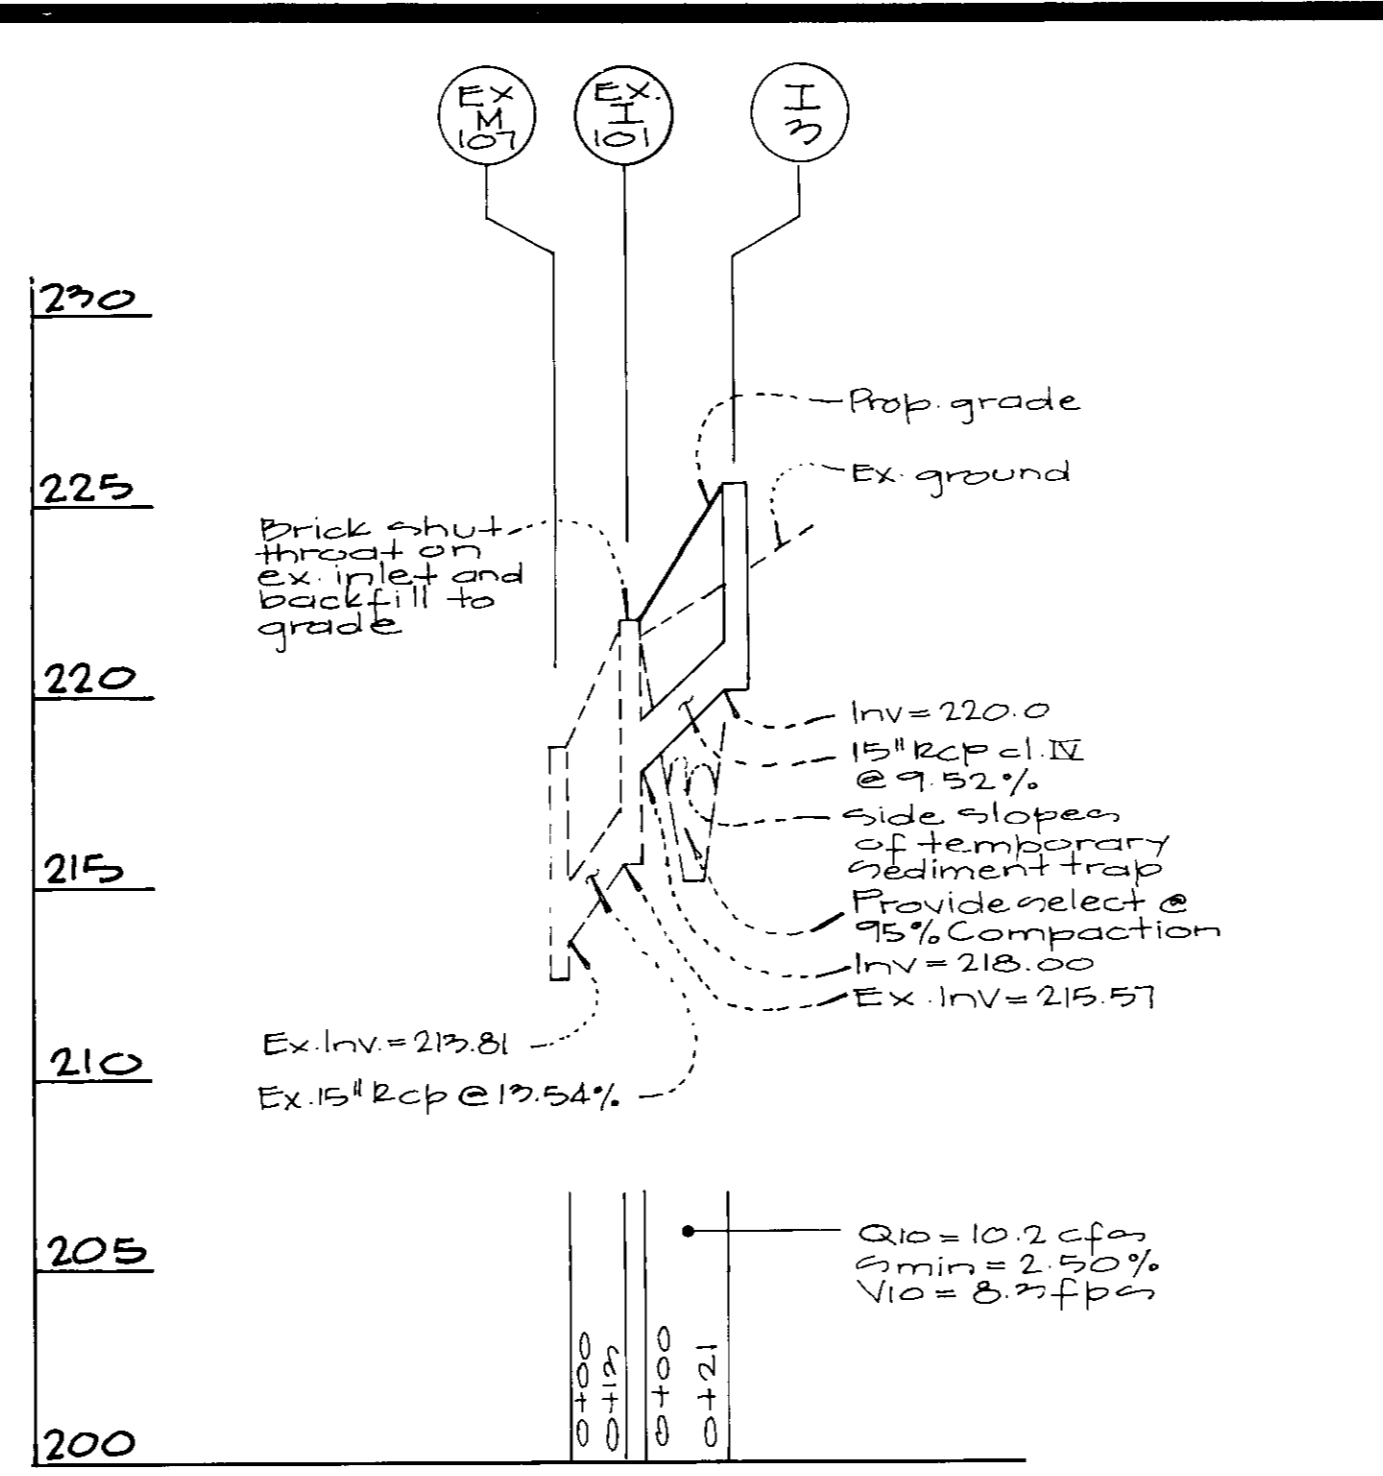 EX
M
107
EX.
I
101
I
3
230
225
220
215
210
205
200
Prop. grade
Ex. ground
Brick shut
throat on
ex. inlet and
backfill to
grade
Inv = 220.0
15" Rcp cl. IV
@ 9.52%
side slopes
of temporary
sediment trap
Provide select @
95% Compaction
Inv = 218.00
Ex. Inv = 215.57
Ex. Inv. = 213.81
Ex. 15" Rcp @ 13.54%
Q10 = 10.2 cfs
Smin = 2.50%
V10 = 8.3 fps
0+00
0+13
0+00
0+21